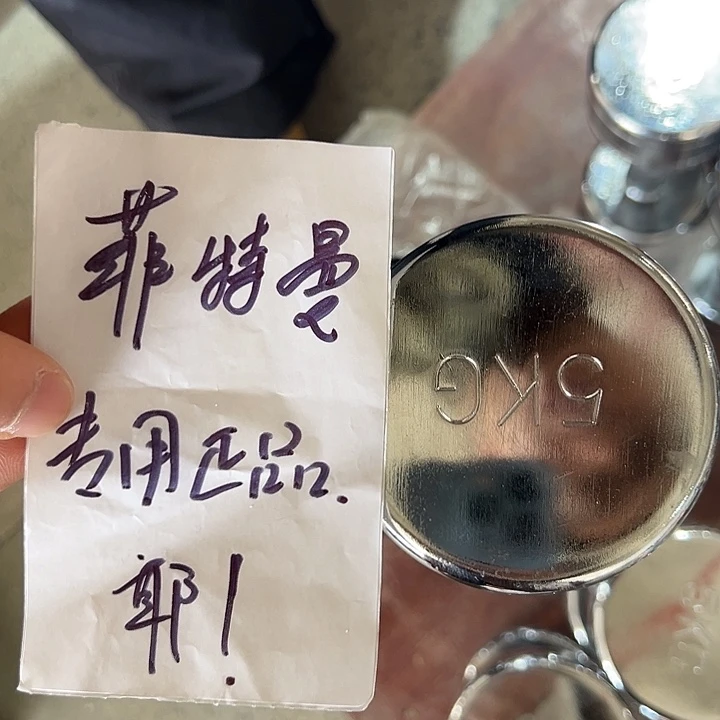 菲特曼
专用正品.
耶!
5KG